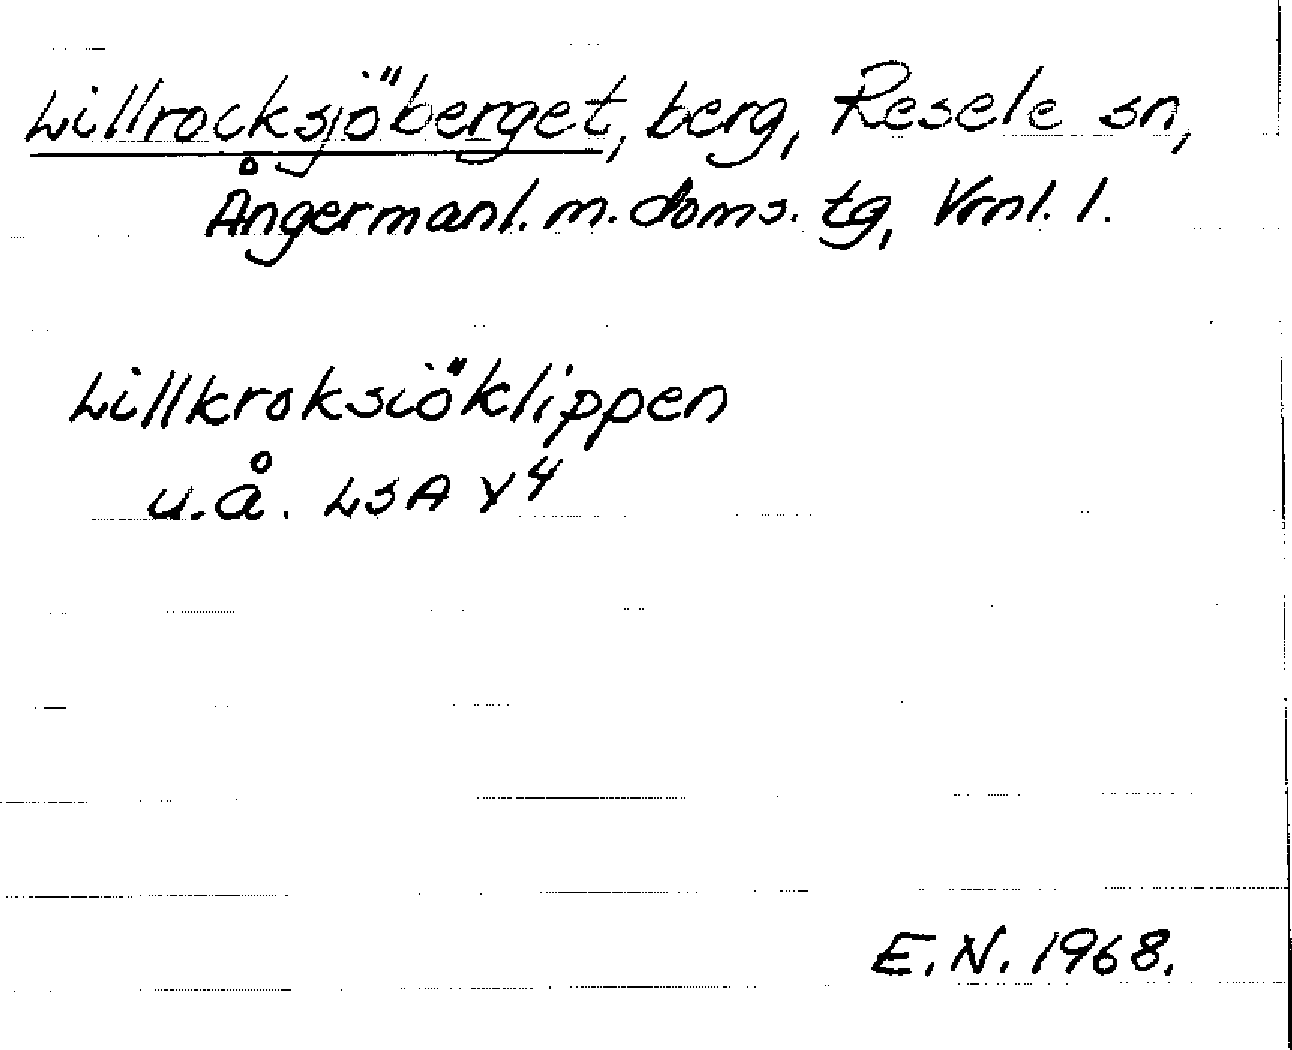 Lillrocksjöberget, berg, Resele sn,
Ångermanl. m. doms. tg, Vrnl. l.
Lillkroksiöklippen
u.å. LSA Y4
E.N. 1968.